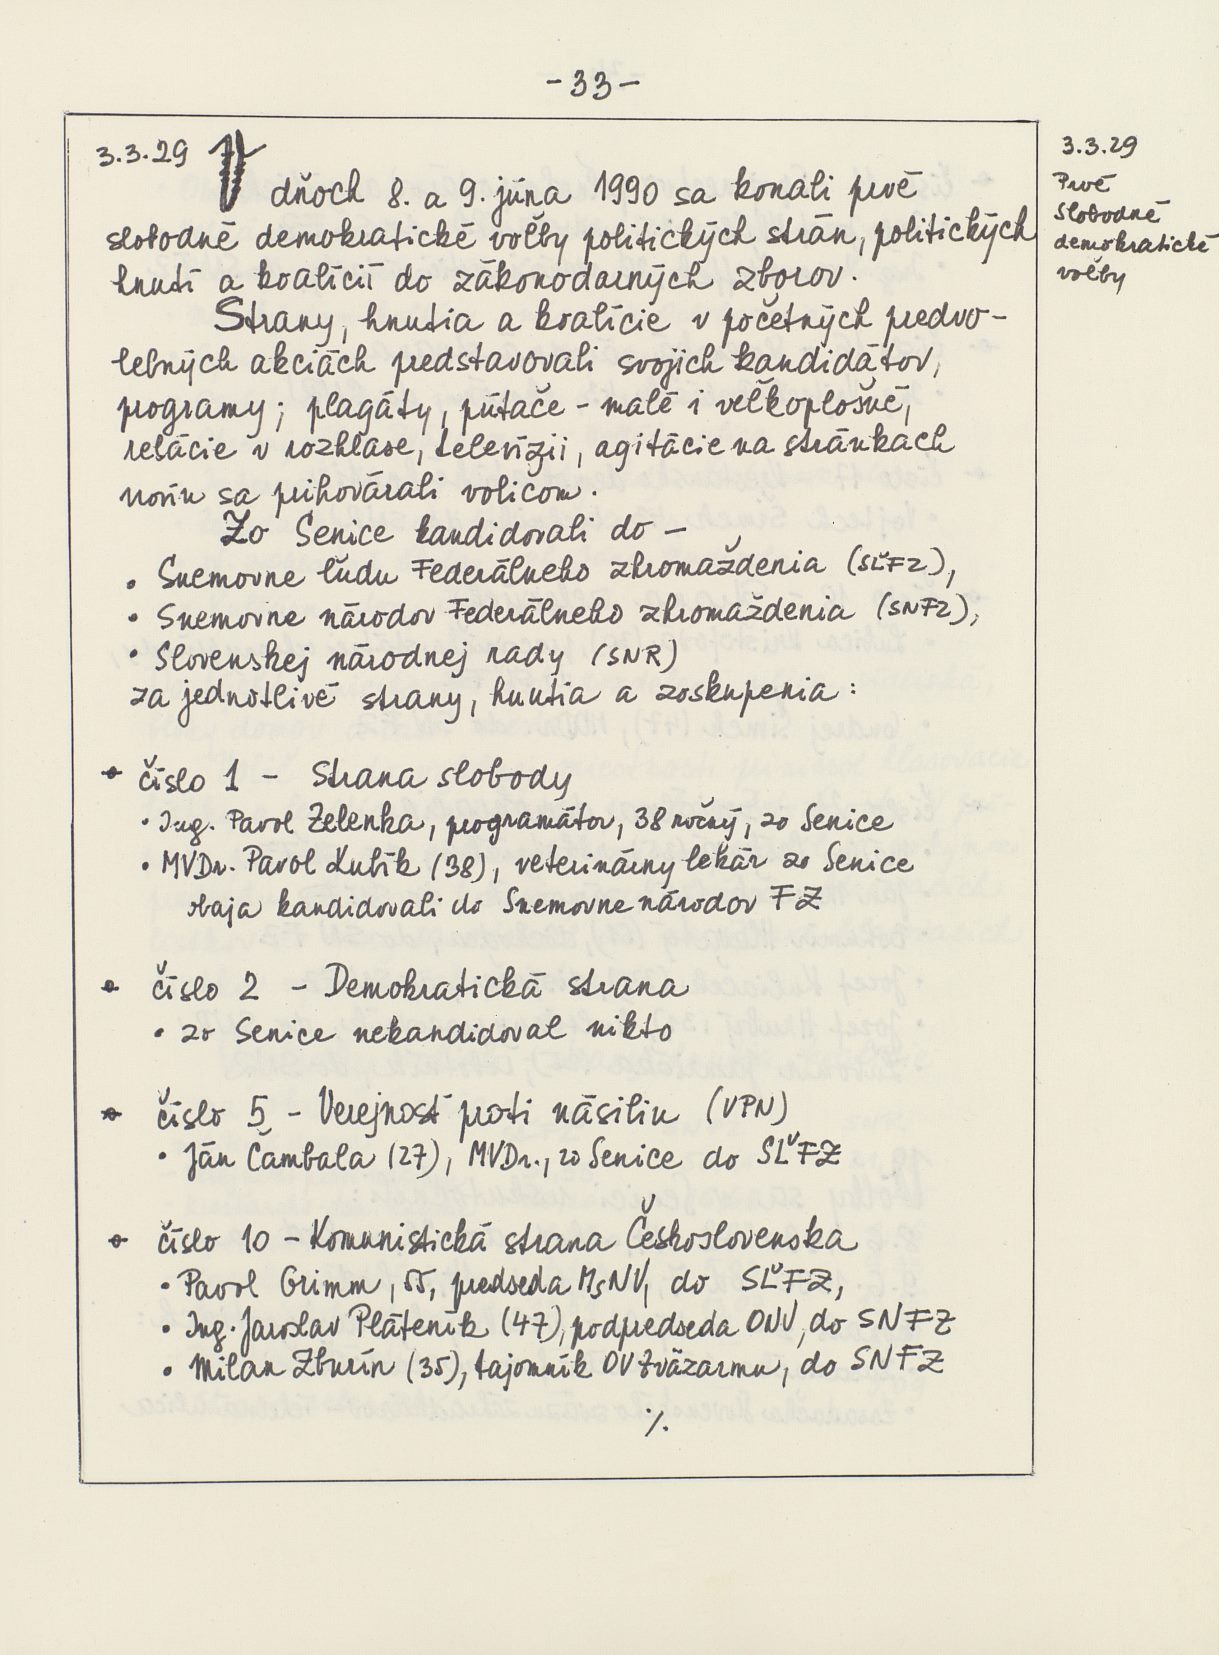 -33-
3.3.29 V dňoch 8. a 9. júna 1990 sa konali prvé
slobodné demokratické voľby politických strán, politických
hnutí a koalícií do zákonodarných zborov.
Strany, hnutia a koalície v početných predvo-
lebných akciách predstavovali svojich kandidátov,
programy; plagáty, pútače - malé i veľkoplošné,
relácie v rozhlase, televízii, agitácie na stránkach
novín sa prihovárali voličom.
Zo Senice kandidovali do -
• Snemovne ľudu Federálneho zhromaždenia (SĽFZ),
• Snemovne národov Federálneho zhromaždenia (SNFZ),
• Slovenskej národnej rady (SNR)
za jednotlivé strany, hnutia a zoskupenia:
číslo 1 - Strana slobody
• Ing. Pavol Zelenka, programátor, 38 ročný, zo Senice
• MVDr. Pavol Kubík (38), veterinárny lekár zo Senice
obaja kandidovali do Snemovne národov FZ
číslo 2 - Demokratická strana
• zo Senice nekandidoval nikto
číslo 5 - Verejnosť proti násiliu (VPN)
• Ján Čambala (27), MVDr., zo Senice do SĽFZ
číslo 10 - Komunistická strana Československa
• Pavol Grimm, 55, predseda MsNV, do SĽFZ,
• Ing. Jaroslav Pláteník (47), podpredseda ONV, do SNFZ
• Milan Zburín (35), tajomník OV Zväzarmu, do SNFZ
./.
3.3.29
Prvé
slobodné
demokratické
voľby